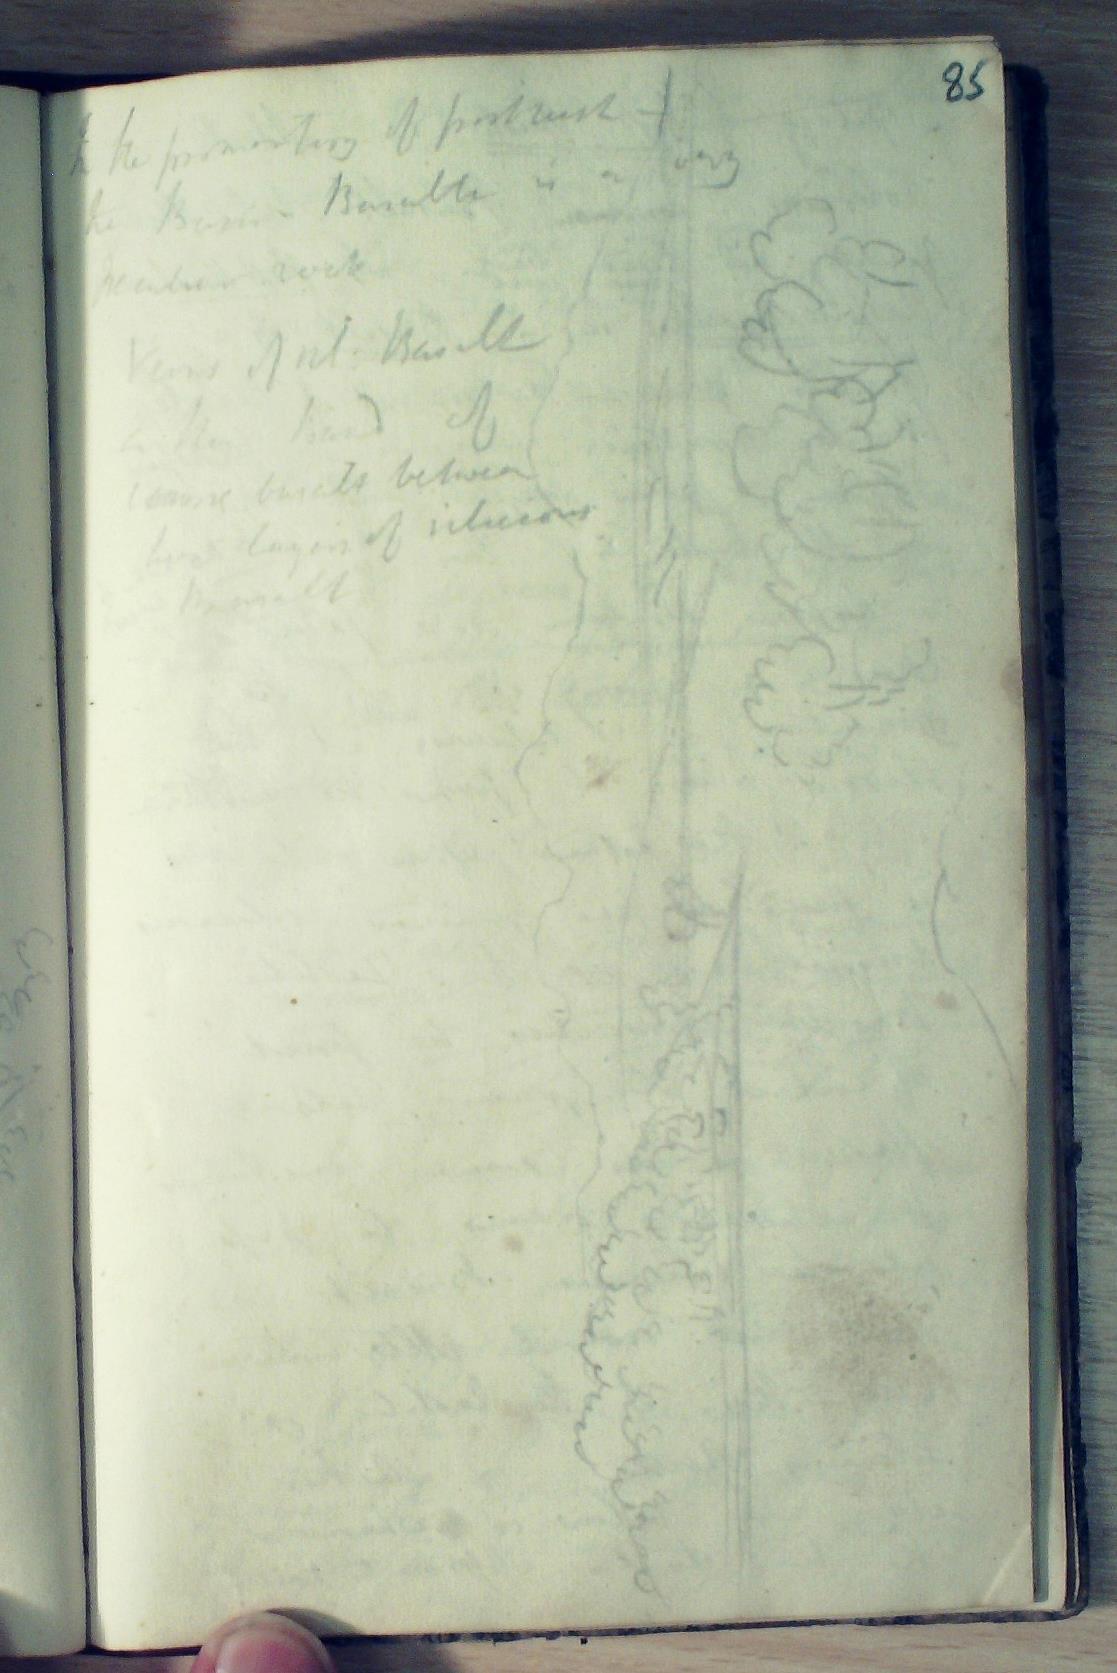 85
the promontory of portrush
the Basin Basalte is a very
peculiar rock
Veins of sil: Basalt
in the Band of
coarse basalt between
two layers of siliceous
Basalt